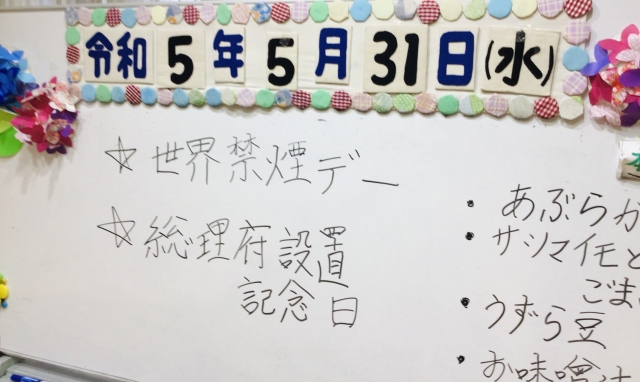 令和5年5月31日(水)
☆世界禁煙デー
☆総理府設置
記念日
・あぶらか
・サツマイモと
ごま
・うずら豆
・お味噌汁